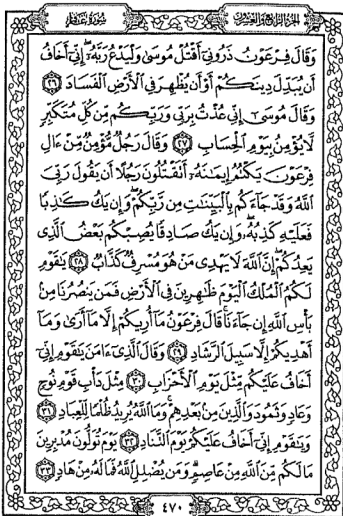 الجزء الرابع والعشرون سورة غافر
وَقَالَ فِرْعَوْنُ ذَرُونِىٓ أَقْتُلْ مُوسَىٰ وَلْيَدْعُ رَبَّهُۥٓ إِنِّىٓ أَخَافُ
أَن يُبَدِّلَ دِينَكُمْ أَوْ أَن يُظْهِرَ فِى ٱلْأَرْضِ ٱلْفَسَادَ ٢٦
وَقَالَ مُوسَىٰٓ إِنِّى عُذْتُ بِرَبِّى وَرَبِّكُم مِّن كُلِّ مُتَكَبِّرٍ
لَّا يُؤْمِنُ بِيَوْمِ ٱلْحِسَابِ ٢٧ وَقَالَ رَجُلٌ مُّؤْمِنٌ مِّنْ ءَالِ
فِرْعَوْنَ يَكْتُمُ إِيمَـٰنَهُۥٓ أَتَقْتُلُونَ رَجُلًا أَن يَقُولَ رَبِّىَ
ٱللَّهُ وَقَدْ جَآءَكُم بِٱلْبَيِّنَـٰتِ مِن رَّبِّكُمْ وَإِن يَكُ كَـٰذِبًا
فَعَلَيْهِ كَذِبُهُۥ وَإِن يَكُ صَادِقًا يُصِبْكُم بَعْضُ ٱلَّذِى
يَعِدُكُمْ إِنَّ ٱللَّهَ لَا يَهْدِى مَنْ هُوَ مُسْرِفٌ كَذَّابٌ ٢٨ يَـٰقَوْمِ
لَكُمُ ٱلْمُلْكُ ٱلْيَوْمَ ظَـٰهِرِينَ فِى ٱلْأَرْضِ فَمَن يَنصُرُنَا مِنۢ
بَأْسِ ٱللَّهِ إِن جَآءَنَا قَالَ فِرْعَوْنُ مَآ أُرِيكُمْ إِلَّا مَآ أَرَىٰ وَمَآ
أَهْدِيكُمْ إِلَّا سَبِيلَ ٱلرَّشَادِ ٢٩ وَقَالَ ٱلَّذِىٓ ءَامَنَ يَـٰقَوْمِ إِنِّىٓ
أَخَافُ عَلَيْكُم مِّثْلَ يَوْمِ ٱلْأَحْزَابِ ٣٠ مِثْلَ دَأْبِ قَوْمِ نُوحٍ
وَعَادٍ وَثَمُودَ وَٱلَّذِينَ مِنۢ بَعْدِهِمْ وَمَا ٱللَّهُ يُرِيدُ ظُلْمًا لِّلْعِبَادِ ٣١
وَيَـٰقَوْمِ إِنِّىٓ أَخَافُ عَلَيْكُمْ يَوْمَ ٱلتَّنَادِ ٣٢ يَوْمَ تُوَلُّونَ مُدْبِرِينَ
مَا لَكُم مِّنَ ٱللَّهِ مِنْ عَاصِمٍ وَمَن يُضْلِلِ ٱللَّهُ فَمَا لَهُۥ مِنْ هَادٍ ٣٣
٤٧٠